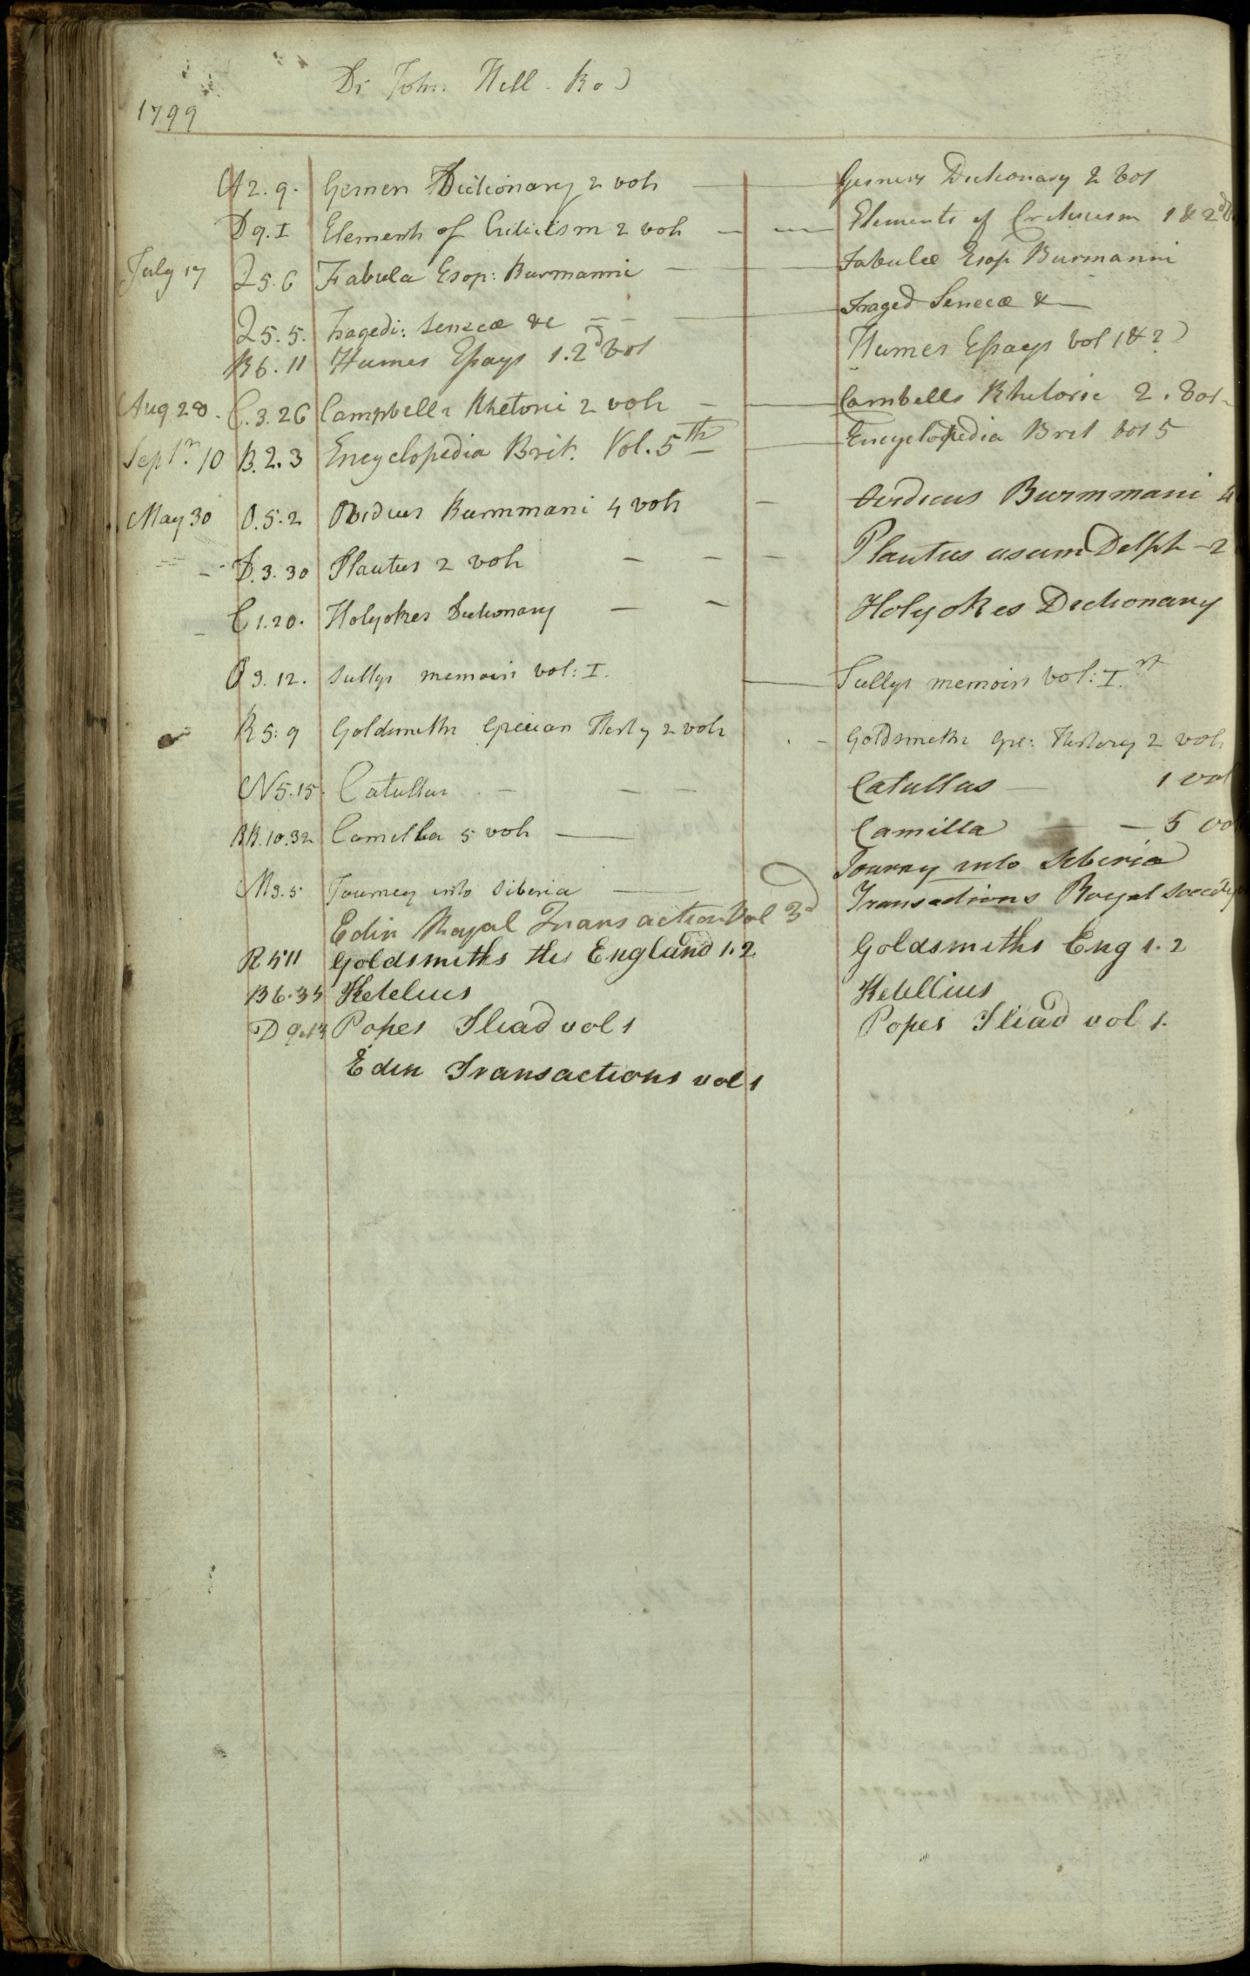 Dr John Hill.
1799
A 2. 9. Gesners Dictionary 2 vols Gesners Dictionary 2 Vol
D 9. I Elements of Criticism 2 vols Elements of Criticism 1 & 2d
July 17 Q 5. 6 Fabula Esop: Burmanni Fabulæ Esop Burmanni
Q 5. 5. Tragedi: Senecæ &c Traged Senecæ &
B 6. 11 Humes Essays 1. 2d Vol Humes Essays Vol 1 & 2
Aug 28. C. 3. 26 Campbells Rhetoric 2 vols Cambells Rhetoric 2. Vol
Septr. 10 B. 2. 3 Encyclopedia Brit. Vol. 5th Encyclopedia Brit Vol 5
May 30 O. 5. 2 Ovidius Burmmani 4 vols Ovidius Burmmani 4
D. 3. 30 Plautus 2 vols Plautus usum Delph - 2
C 1. 20. Holyokes Dictionary Holyokes Dictionary
O 3. 12. Sullys memoirs vol: I. Sullys memoirs vol: I.st
R 5. 9 Goldsmiths Grecian History 2 vols Goldsmiths Gre: History 2 vols
N 5. 15. Catullus Catullus 1 vol
BB. 10. 32 Camilla 5 vols Camilla 5 vo
M 3. 5 Journey into Siberia Journy into Siberia
Edin Royal Transaction Vol 3d Transactions Royal Society
R 5 11 Goldsmiths His England 1. 2 Goldsmiths Eng 1. 2
B 6. 35 Ketelius Ketellius
D 9. 13 Popes Iliad vol 1 Popes Iliad vol 1.
Edin Transactions vol 1